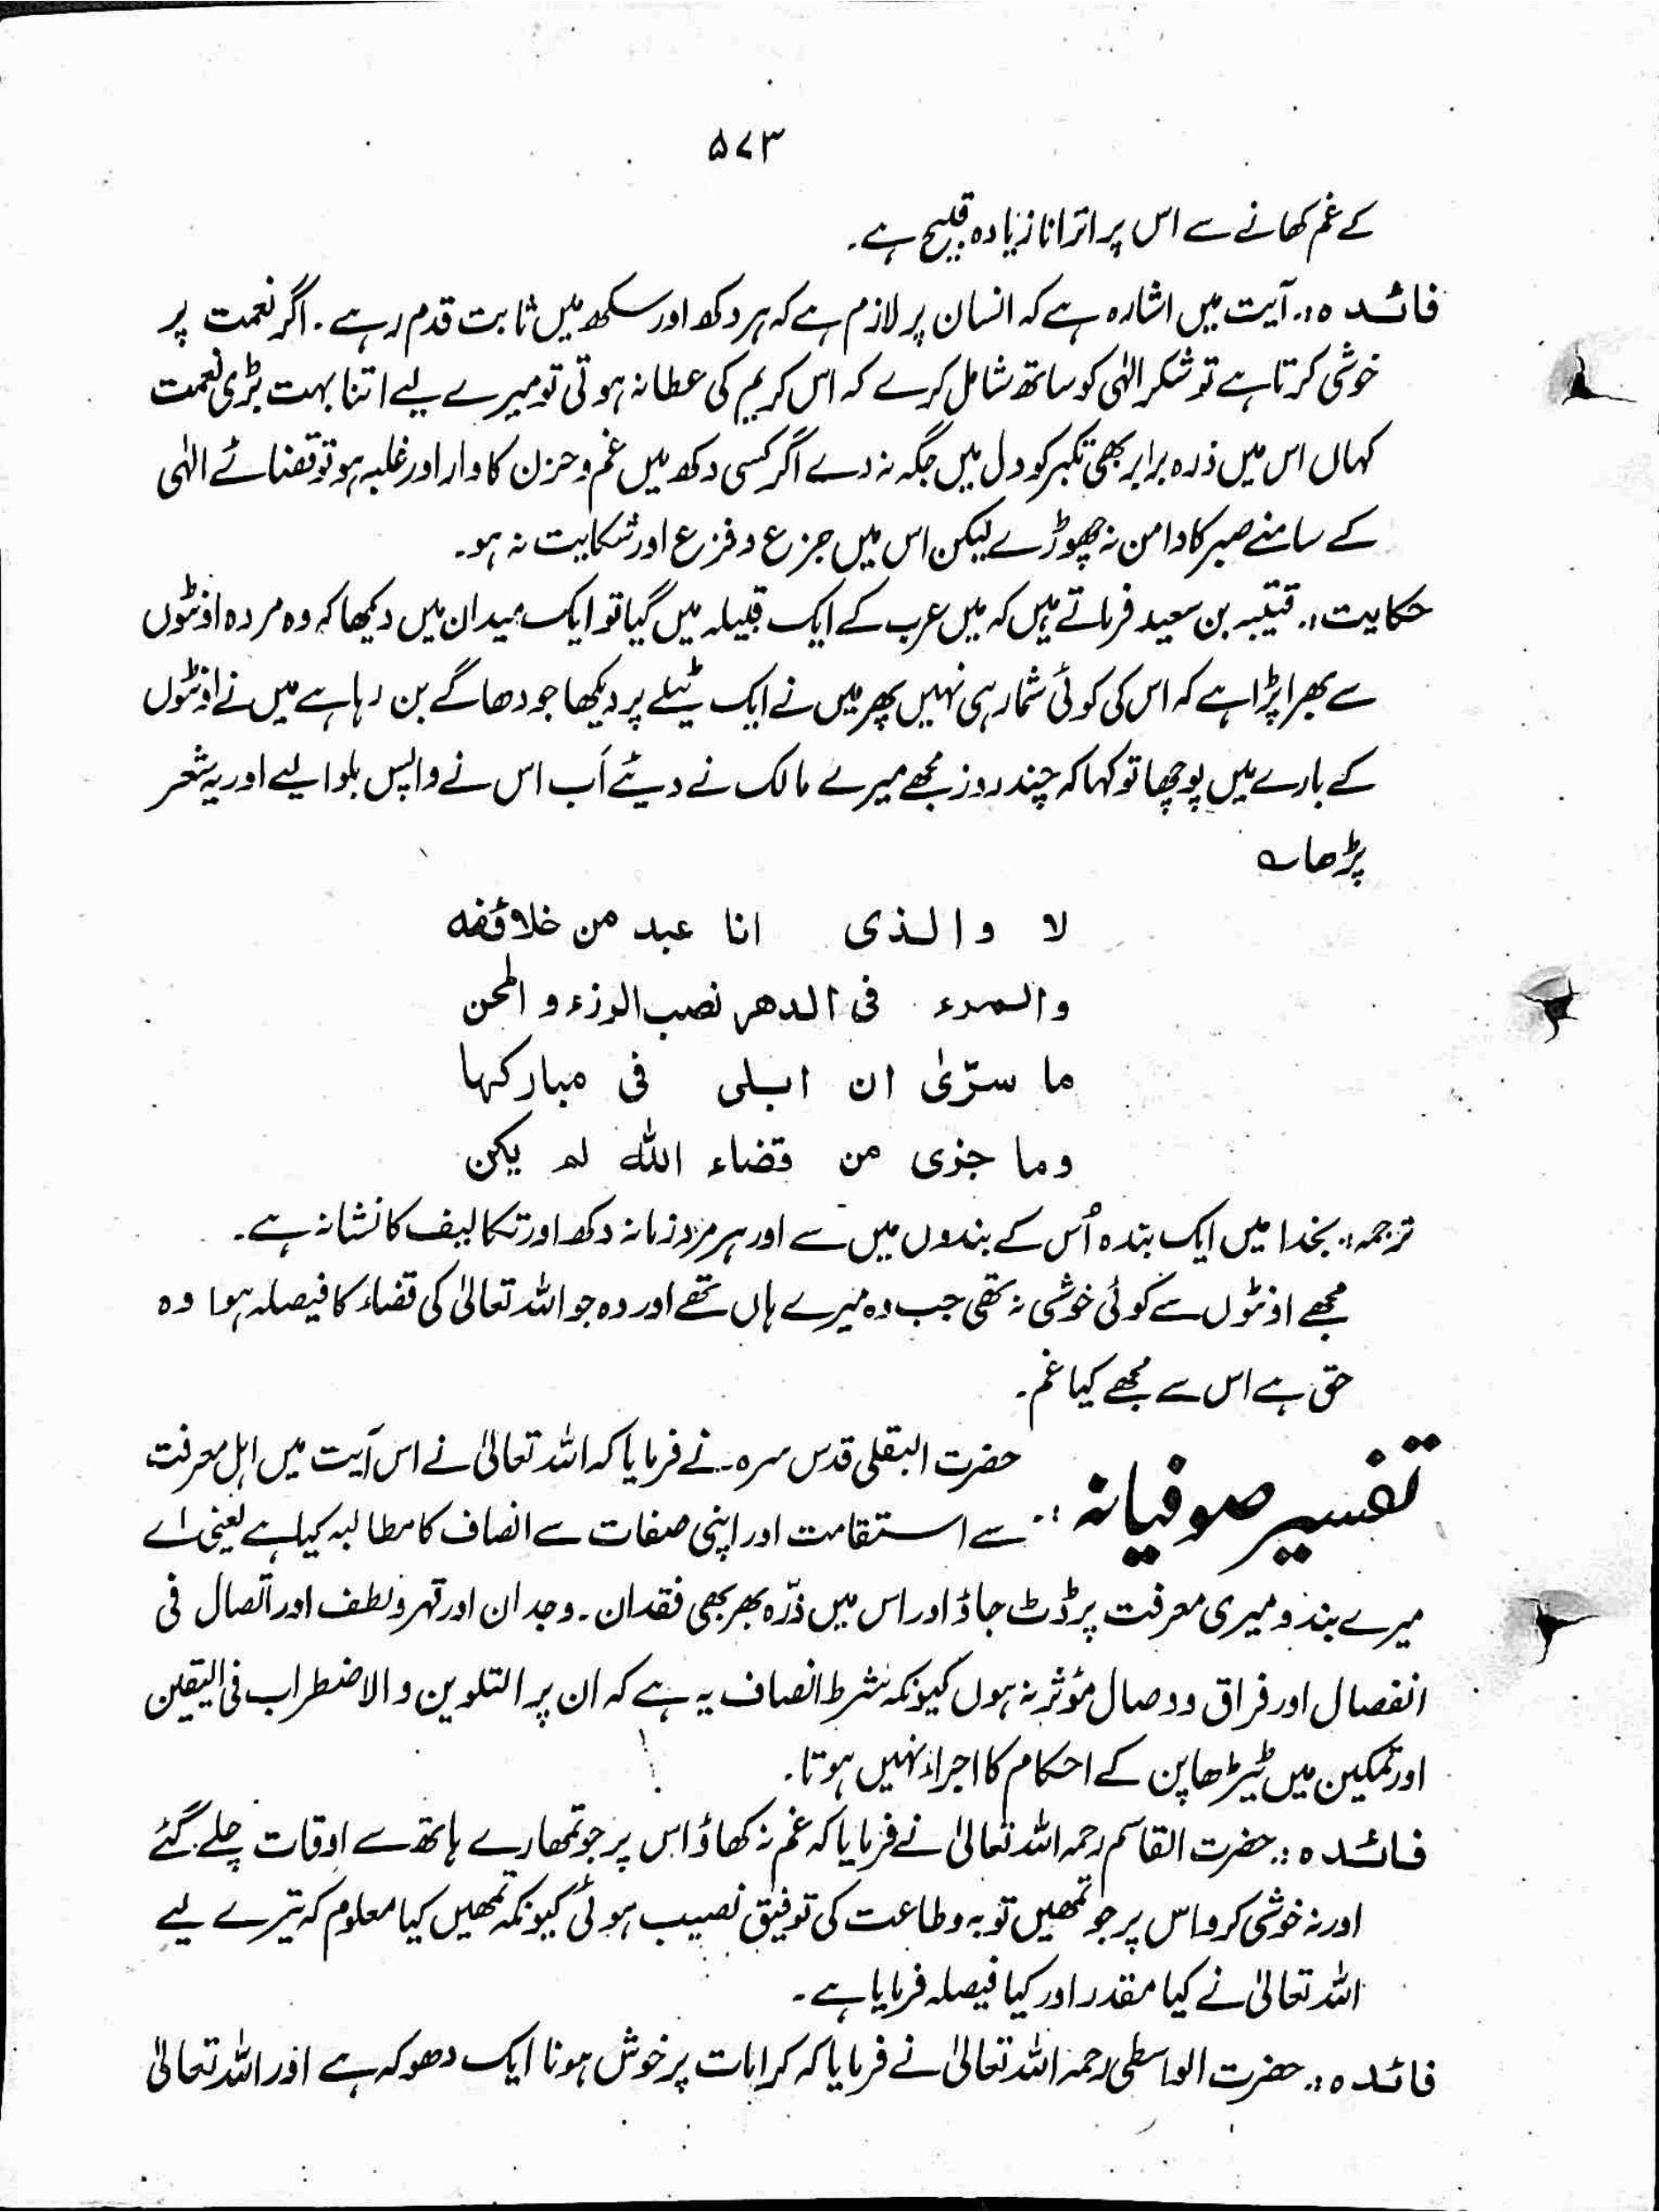 ۵۷۳
کے غم کھانے سے اس پر اترانا زیادہ قبیح ہے۔
فائدہ :۔ آیت میں اشارہ ہے کہ انسان پر لازم ہے کہ ہر دکھ اور سکھ میں ثابت قدم رہے ۔ اگر نعمت پر
خوشی کرتا ہے تو شکر الٰہی کو ساتھ شامل کرے کہ اس کریم کی عطا نہ ہوتی تو میرے لیے اتنا بہت بڑی نعمت
کہاں اس میں ذرہ برابر بھی تکبر کو دل میں جگہ نہ دے اگر کسی دکھ میں غم و حزن کا وار اور غلبہ ہو تو قضائے الٰہی
کے سامنے صبر کا دامن نہ چھوڑے لیکن اس میں جزع و فزع اور شکایت نہ ہو۔
حکایت :۔ قتیبہ بن سعید فرماتے ہیں کہ میں عرب کے ایک قبیلہ میں گیا تو ایک میدان میں دیکھا کہ وہ مردہ اونٹوں
سے بھرا پڑا ہے کہ اس کی کوئی شمار ہی نہیں پھر میں نے ایک ٹیلے پر دیکھا جو دھاگے بن رہا ہے میں نے اونٹوں
کے بارے میں پوچھا تو کہا کہ چند روز مجھے میرے مالک نے دیئے اَب اس نے واپس بلوا لیے اور یہ شعر
پڑھا ؎
لا والذی انا عبد من خلائفه
والمرء فی الدهر نصب الرزء و المحن
ما سرّیٰ ان ابلی فی مبارکها
وما جزی من قضاء الله لم یکن
ترجمہ :۔ بخدا میں ایک بندہ اُس کے بندوں میں سے اور ہر مرد زمانہ دکھ اور تکالیف کا نشانہ ہے۔
مجھے اونٹوں سے کوئی خوشی نہ تھی جب وہ میرے ہاں تھے اور وہ جو اللہ تعالیٰ کی قضاء کا فیصلہ ہوا وہ
حق ہے اس سے مجھے کیا غم۔
تفسیر صوفیانہ :۔ حضرت البقلی قدس سرہ۔ نے فرمایا کہ اللہ تعالیٰ نے اس آیت میں اہل معرفت
سے استقامت اور اپنی صفات سے انصاف کا مطالبہ کیا ہے یعنی اے
میرے بندو میری معرفت پر ڈٹ جاؤ اور اس میں ذرّہ بھر بھی فقدان ۔ وجدان اور قہر و لطف اور اتصال فی
انفصال اور فراق و وصال مؤثر نہ ہوں کیونکہ شرط انصاف یہ ہے کہ ان پر التلوین و الاضطراب فی الیقین
اور تمکین میں ٹیڑھا پن کے احکام کا اجراء نہیں ہوتا۔
فائدہ :۔ حضرت القاسم رحمہ اللہ تعالیٰ نے فرمایا کہ غم نہ کھاؤ اس پر جو تمھارے ہاتھ سے اوقات چلے گئے
اور نہ خوشی کرو اس پر جو تمھیں توبہ و طاعت کی توفیق نصیب ہوئی کیونکہ تمھیں کیا معلوم کہ تیرے لیے
اللہ تعالیٰ نے کیا مقدر اور کیا فیصلہ فرمایا ہے ۔
فائدہ :۔ حضرت الواسطی رحمہ اللہ تعالیٰ نے فرمایا کہ کرامات پر خوش ہونا ایک دھوکہ ہے اور اللہ تعالیٰ